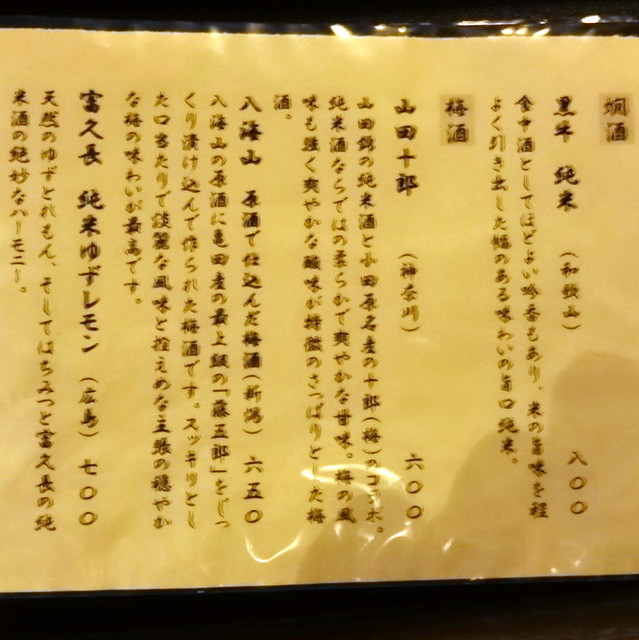 燗酒
黒牛 純米 (和歌山) 八〇〇
食中酒としてほどよい吟香もあり、米の旨味を程
よく引き出した幅のある味わいの旨口純米。
梅酒
山田十郎 (神奈川) 六〇〇
山田錦の純米酒と小田原名産の十郎(梅)のコラボ。
純米酒ならではの柔らかで爽やかな甘味。梅の風
味も強く爽やかな酸味が特徴のさっぱりとした梅
酒。
八海山 原酒で仕込んだ梅酒(新潟) 六五〇
八海山の原酒に亀田産の最上級の「藤五郎」をじっ
くり漬け込んで作られた梅酒です。スッキリとし
た口当たりで淡麗な風味と控えめな主張の穏やか
な梅の味わいが最高です。
富久長 純米ゆずレモン (広島) 七〇〇
天然のゆずとれもん、そしてはちみつと富久長の純
米酒の絶妙なハーモニー。